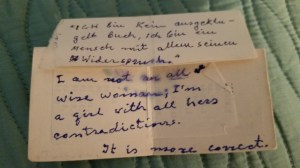 "Ich bin kein ausgeklü-
gelt Buch, ich bin ein
Mensch mit allem seinem
Widerspruch."
I am not an all
wise woman; I'm
a girl with all hers
contradictions.
It is more correct.